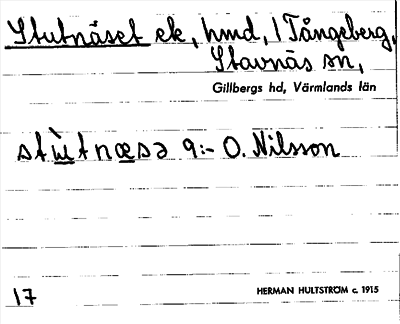 Stutnäset ek, hmd, 1 Tångeberg,
Stavnäs sn,
Gillbergs hd, Värmlands län
stùtnœsə q:- O. Nilsson
17
HERMAN HULTSTRÖM c. 1915